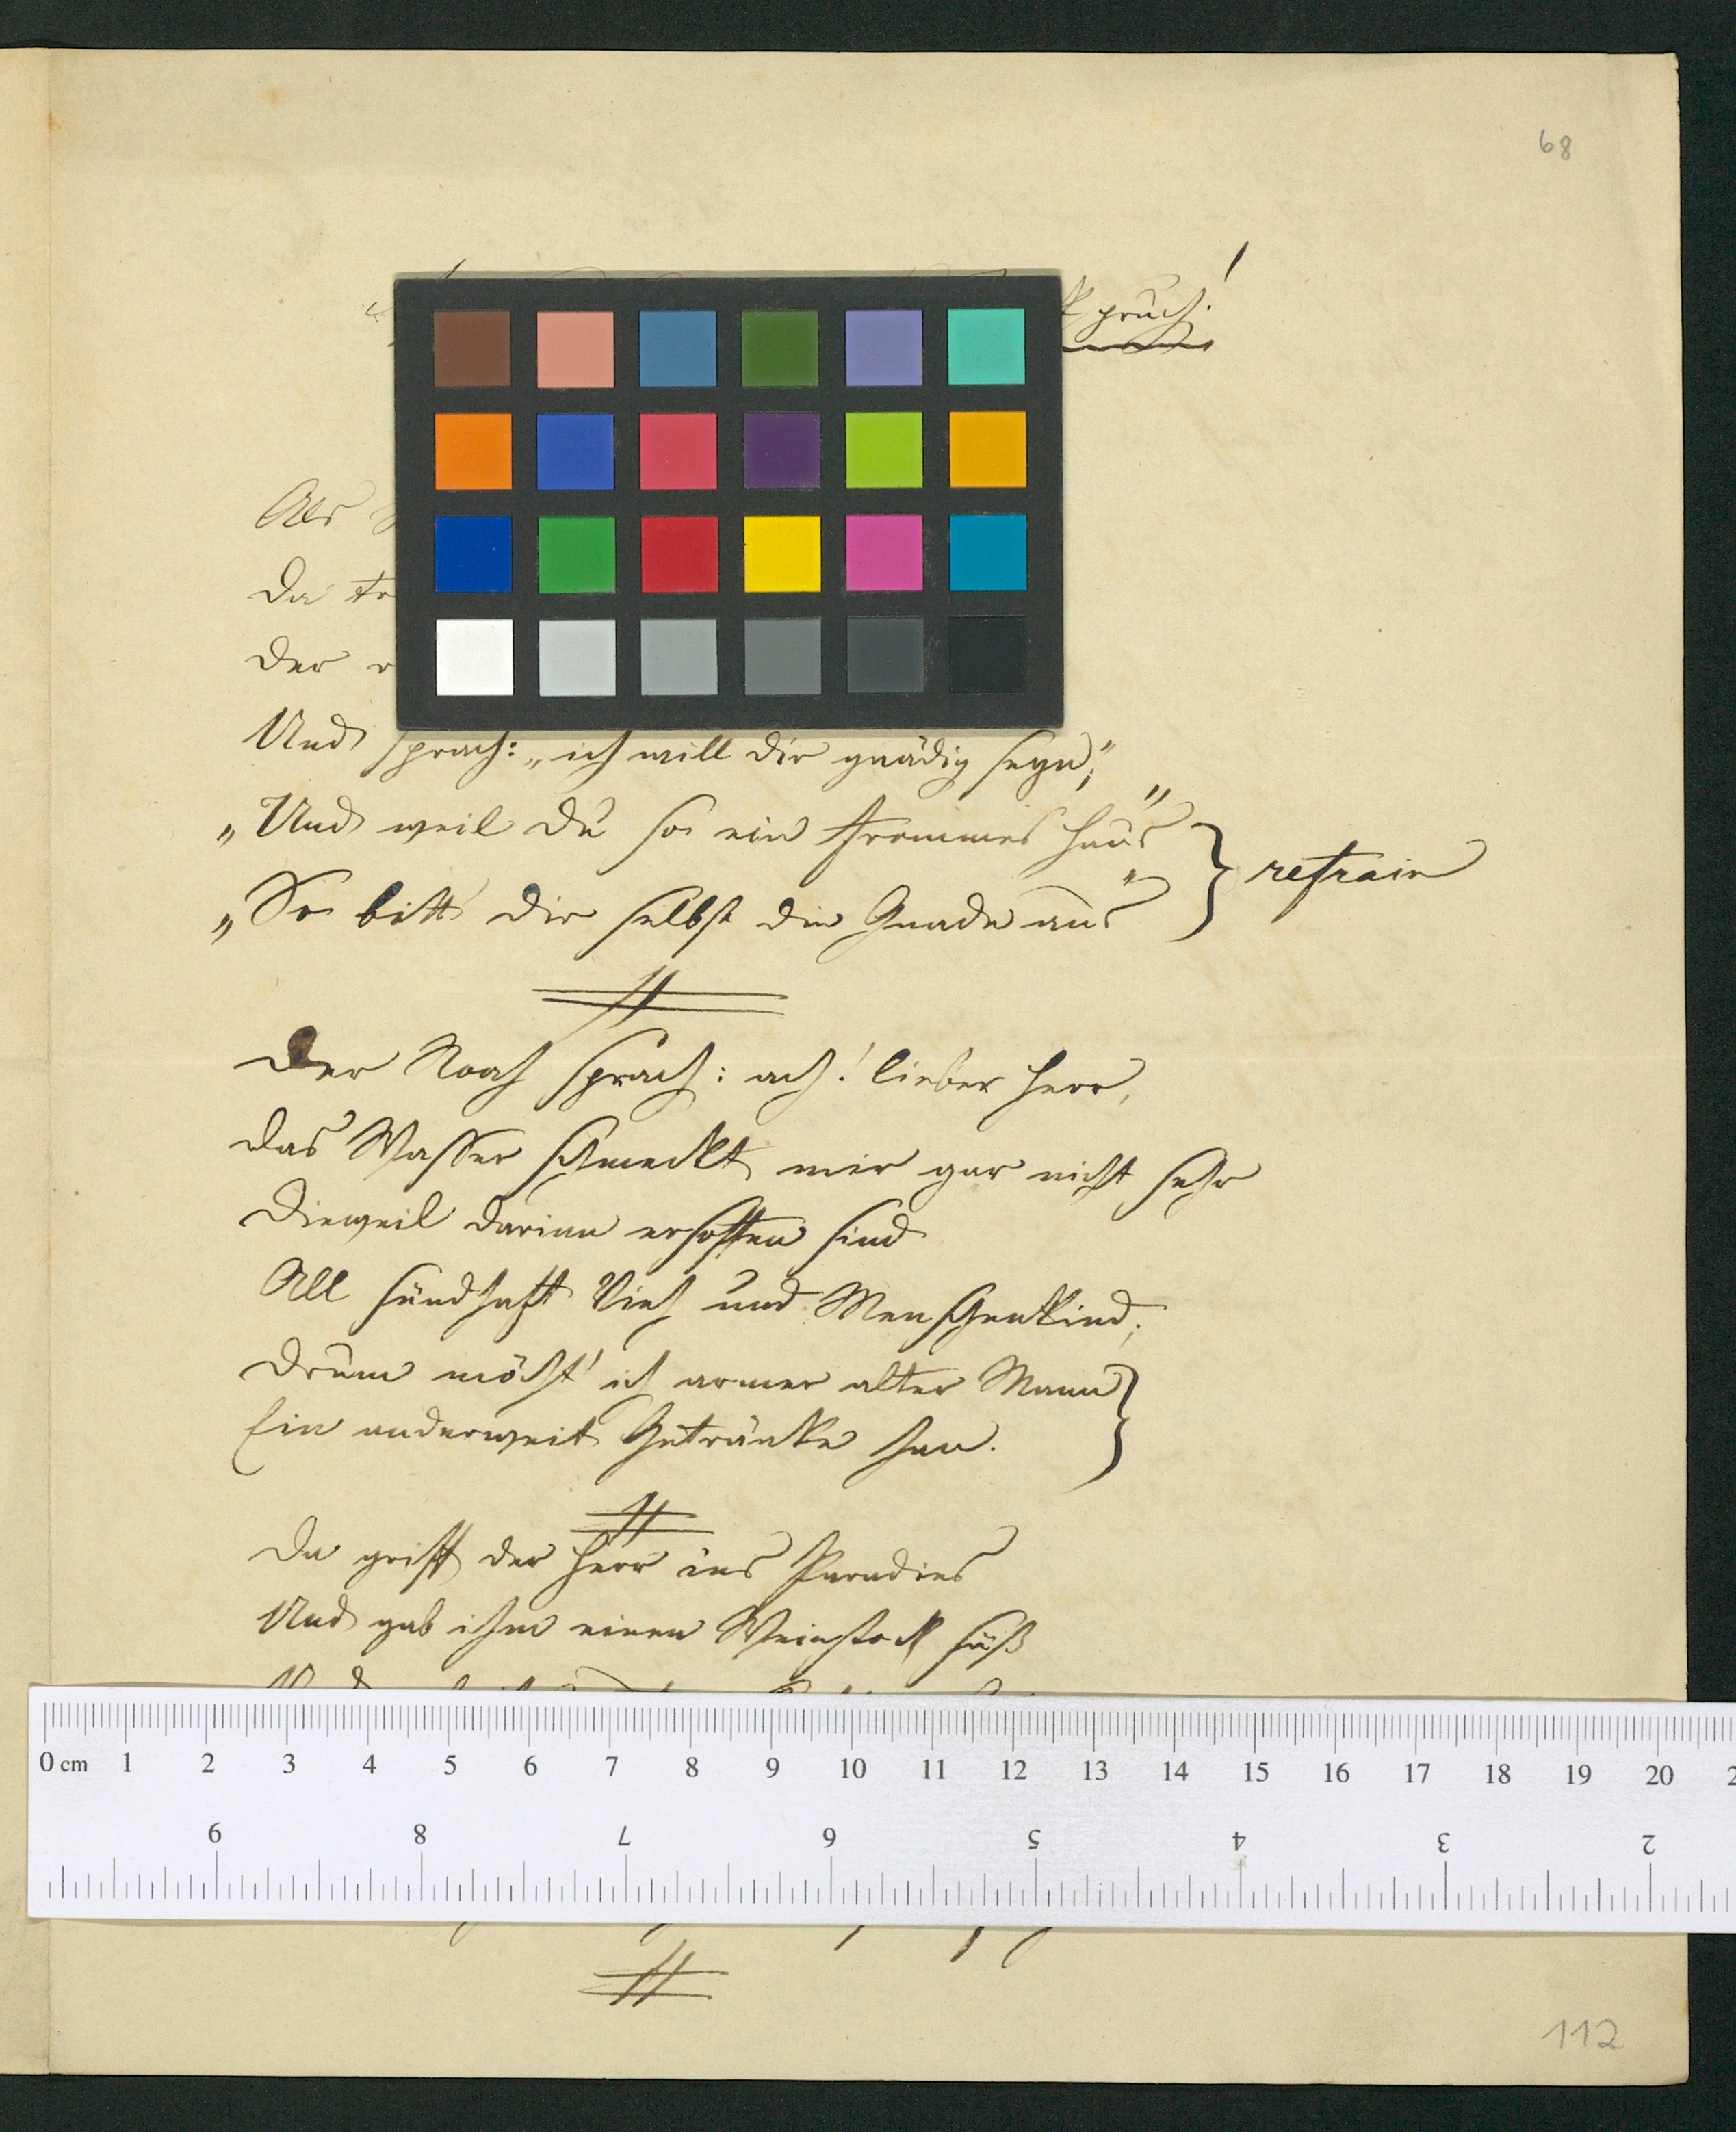 68
Als
Da
Der
Und sprach: „ich will dir gnädig seyn;"
„Und weil du so ein frommes Haus"
„So bitt' dir selbst die Gnade aus"
refrain
Der Noah sprach: ach! lieber Herr,
Das Wasser schmeckt mir gar nicht sehr
Dieweil darinn ersoffen sind
All sündhaft Vieh und Menschenkind;
Drum möcht' ich armer alter Mann
Ein anderweit Getränke han.
Da griff der Herr ins Paradies
Und gab ihm einen Weinstock süß
0 cm 1 2 3 4 5 6 7 8 9 10 11 12 13 14 15 16 17 18 19 20
9 8 7 6 5 4 3 2
112